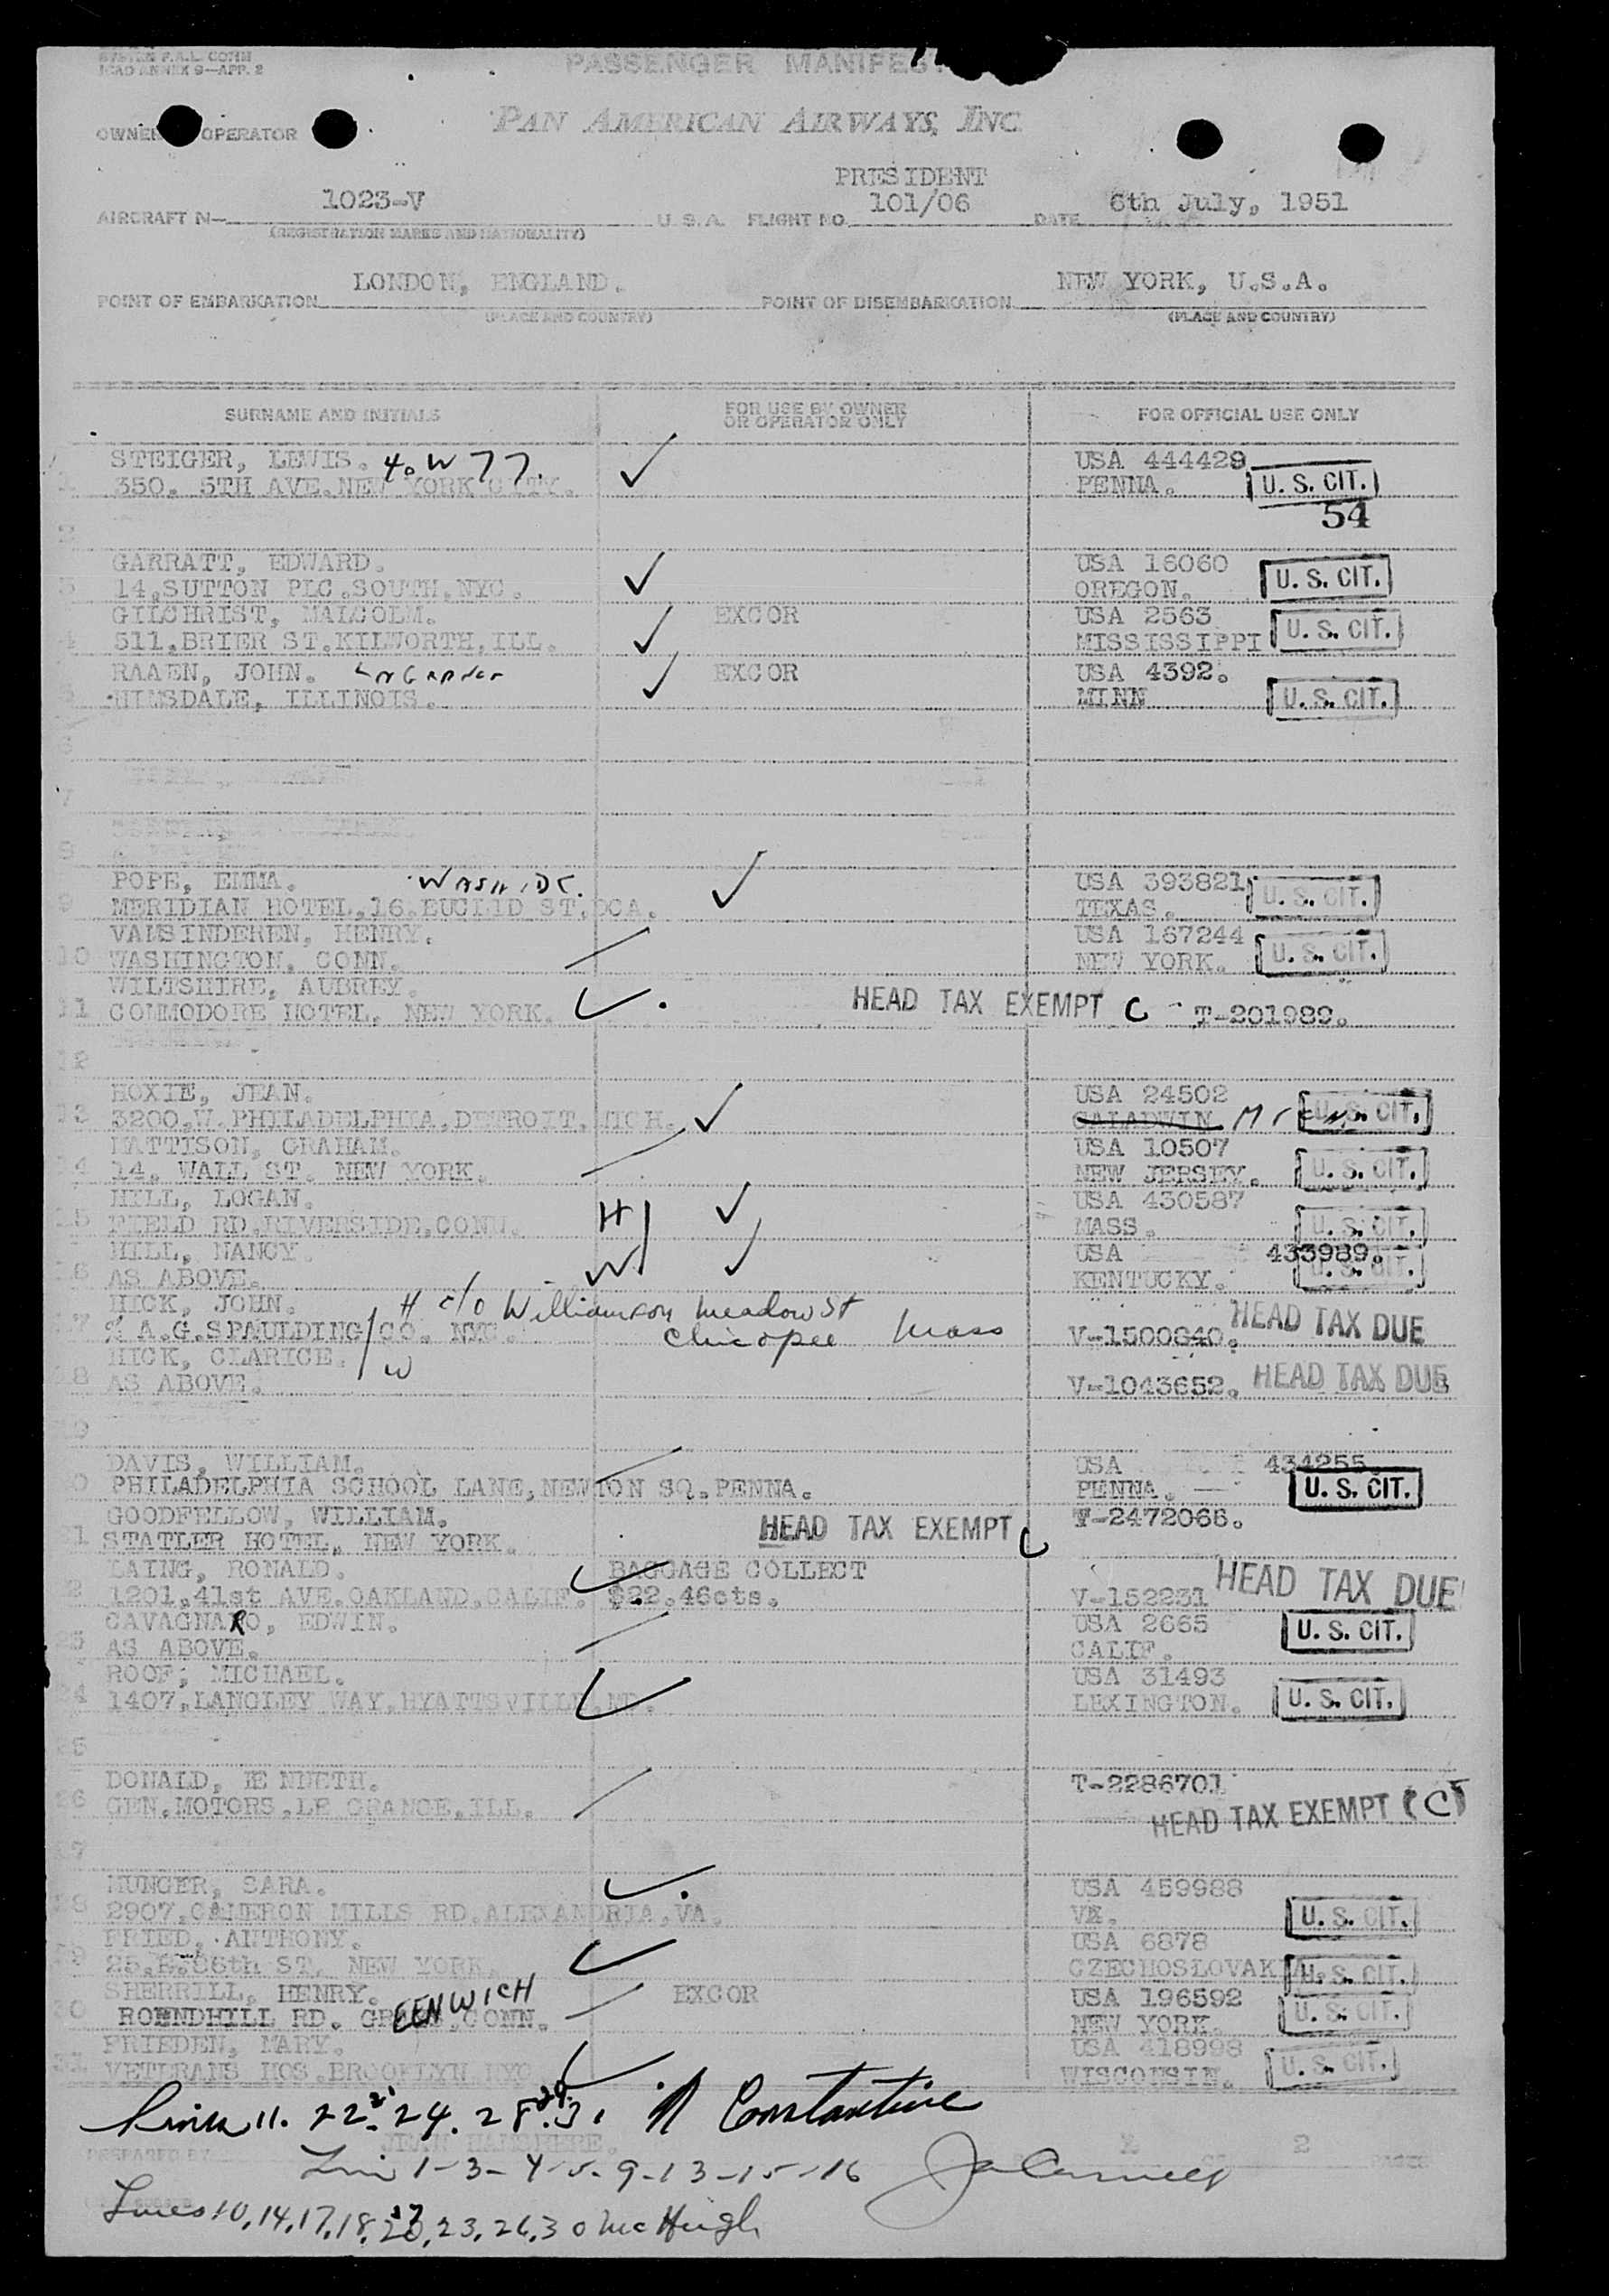 SYSTEM F.A.L. COMM
ICAO ANNEX 9—APP. 2
PASSENGER MANIFEST
OWNER OPERATOR
PAN AMERICAN AIRWAYS, INC
PRESIDENT
AIRCRAFT N— 1023-V U. S. A. FLIGHT NO. 101/06 DATE 6th July, 1951
(REGISTRATION MARKS AND NATIONALITY)
POINT OF EMBARKATION LONDON, ENGLAND. POINT OF DISEMBARKATION NEW YORK, U.S.A.
(PLACE AND COUNTRY) (PLACE AND COUNTRY)
SURNAME AND INITIALS FOR USE BY OWNER OR OPERATOR ONLY FOR OFFICIAL USE ONLY
STEIGER, LEWIS. 40 W 77. USA 444429
1 350. 5TH AVE. NEW YORK CITY. PENNA. U. S. CIT.
54
2
GARRATT, EDWARD. USA 16060
3 14, SUTTON PLC. SOUTH. NYC. OREGON. U. S. CIT.
GILCHRIST, MALCOLM. EXCOR USA 2563
4 511, BRIER ST. KILWORTH, ILL. MISSISSIPPI U. S. CIT.
RAAEN, JOHN. EXCOR USA 4392.
5 HINSDALE, ILLINOIS. MINN U. S. CIT.
6
7
8
POPE, EMMA. WASH. DC. USA 393821
9 MERIDIAN HOTEL, 16. EUCLID ST, DCA. TEXAS. U. S. CIT.
VANSINDEREN, HENRY. USA 167244
10 WASHINGTON, CONN. NEW YORK. U. S. CIT.
WILTSHIRE, AUBREY.
11 COMMODORE HOTEL, NEW YORK. HEAD TAX EXEMPT C T-201989.
12
HOXIE, JEAN. USA 24502
13 3200, W. PHILADELPHIA, DETROIT, MICH. GALADWIN U. S. CIT.
MATTISON, GRAHAM. USA 10507
14 14, WALL ST. NEW YORK. NEW JERSEY. U. S. CIT.
HILL, LOGAN. H USA 430587
15 FIELD RD. RIVERSIDE, CONN. MASS. U. S. CIT.
HILL, NANCY. W USA 433989.
16 AS ABOVE. KENTUCKY. U. S. CIT.
HICK, JOHN. H c/o Williamson Meadow St
17 % A.G. SPAULDING CO. NYC. Chicopee Mass V-1500840. HEAD TAX DUE
HICK, CLARICE. W
18 AS ABOVE. V-1043652. HEAD TAX DUE
19
DAVIS, WILLIAM. USA 434255.
20 PHILADELPHIA SCHOOL LANE, NEWTON SQ. PENNA. PENNA. U. S. CIT.
GOODFELLOW, WILLIAM. T-2472066.
21 STATLER HOTEL, NEW YORK. HEAD TAX EXEMPT C
LAING, RONALD. BAGGAGE COLLECT HEAD TAX DUE
22 1201, 41st AVE. OAKLAND. CALIF. $22.46cts. V-152231
CAVAGNARO, EDWIN. USA 2665
23 AS ABOVE. CALIF. U. S. CIT.
ROOF, MICHAEL. USA 31493
24 1407, LANGLEY WAY, HYATTSVILLE, MD. LEXINGTON. U. S. CIT.
25
DONALD, T-2286701
26 GEN. MOTORS, LE GRANGE, ILL. HEAD TAX EXEMPT (C)
27
MUNGER, SARA. USA 459988
28 2907, CAMERON MILLS RD. ALEXANDRIA, VA. VA. U. S. CIT.
FRIED, ANTHONY. USA 6878
29 25, E. 86th ST, NEW YORK. CZECHOSLOVAKIA U. S. CIT.
SHERRILL, HENRY. EXCOR USA 196592
30 ROUNDHILL RD. GREENWICH, CONN. NEW YORK. U. S. CIT.
FRIEDEN, MARY. USA 418998
31 VETERANS HOS. BROOKLYN NYC WISCONSIN. U. S. CIT.
Lines 11. 22. 24. 28. 29. 31 Constantine
PREPARED BY 2 PAGES
Lines 1-3-4-5-9-13-15-16
Lines 10, 14, 17, 18, 20, 23, 26, 30 McHugh